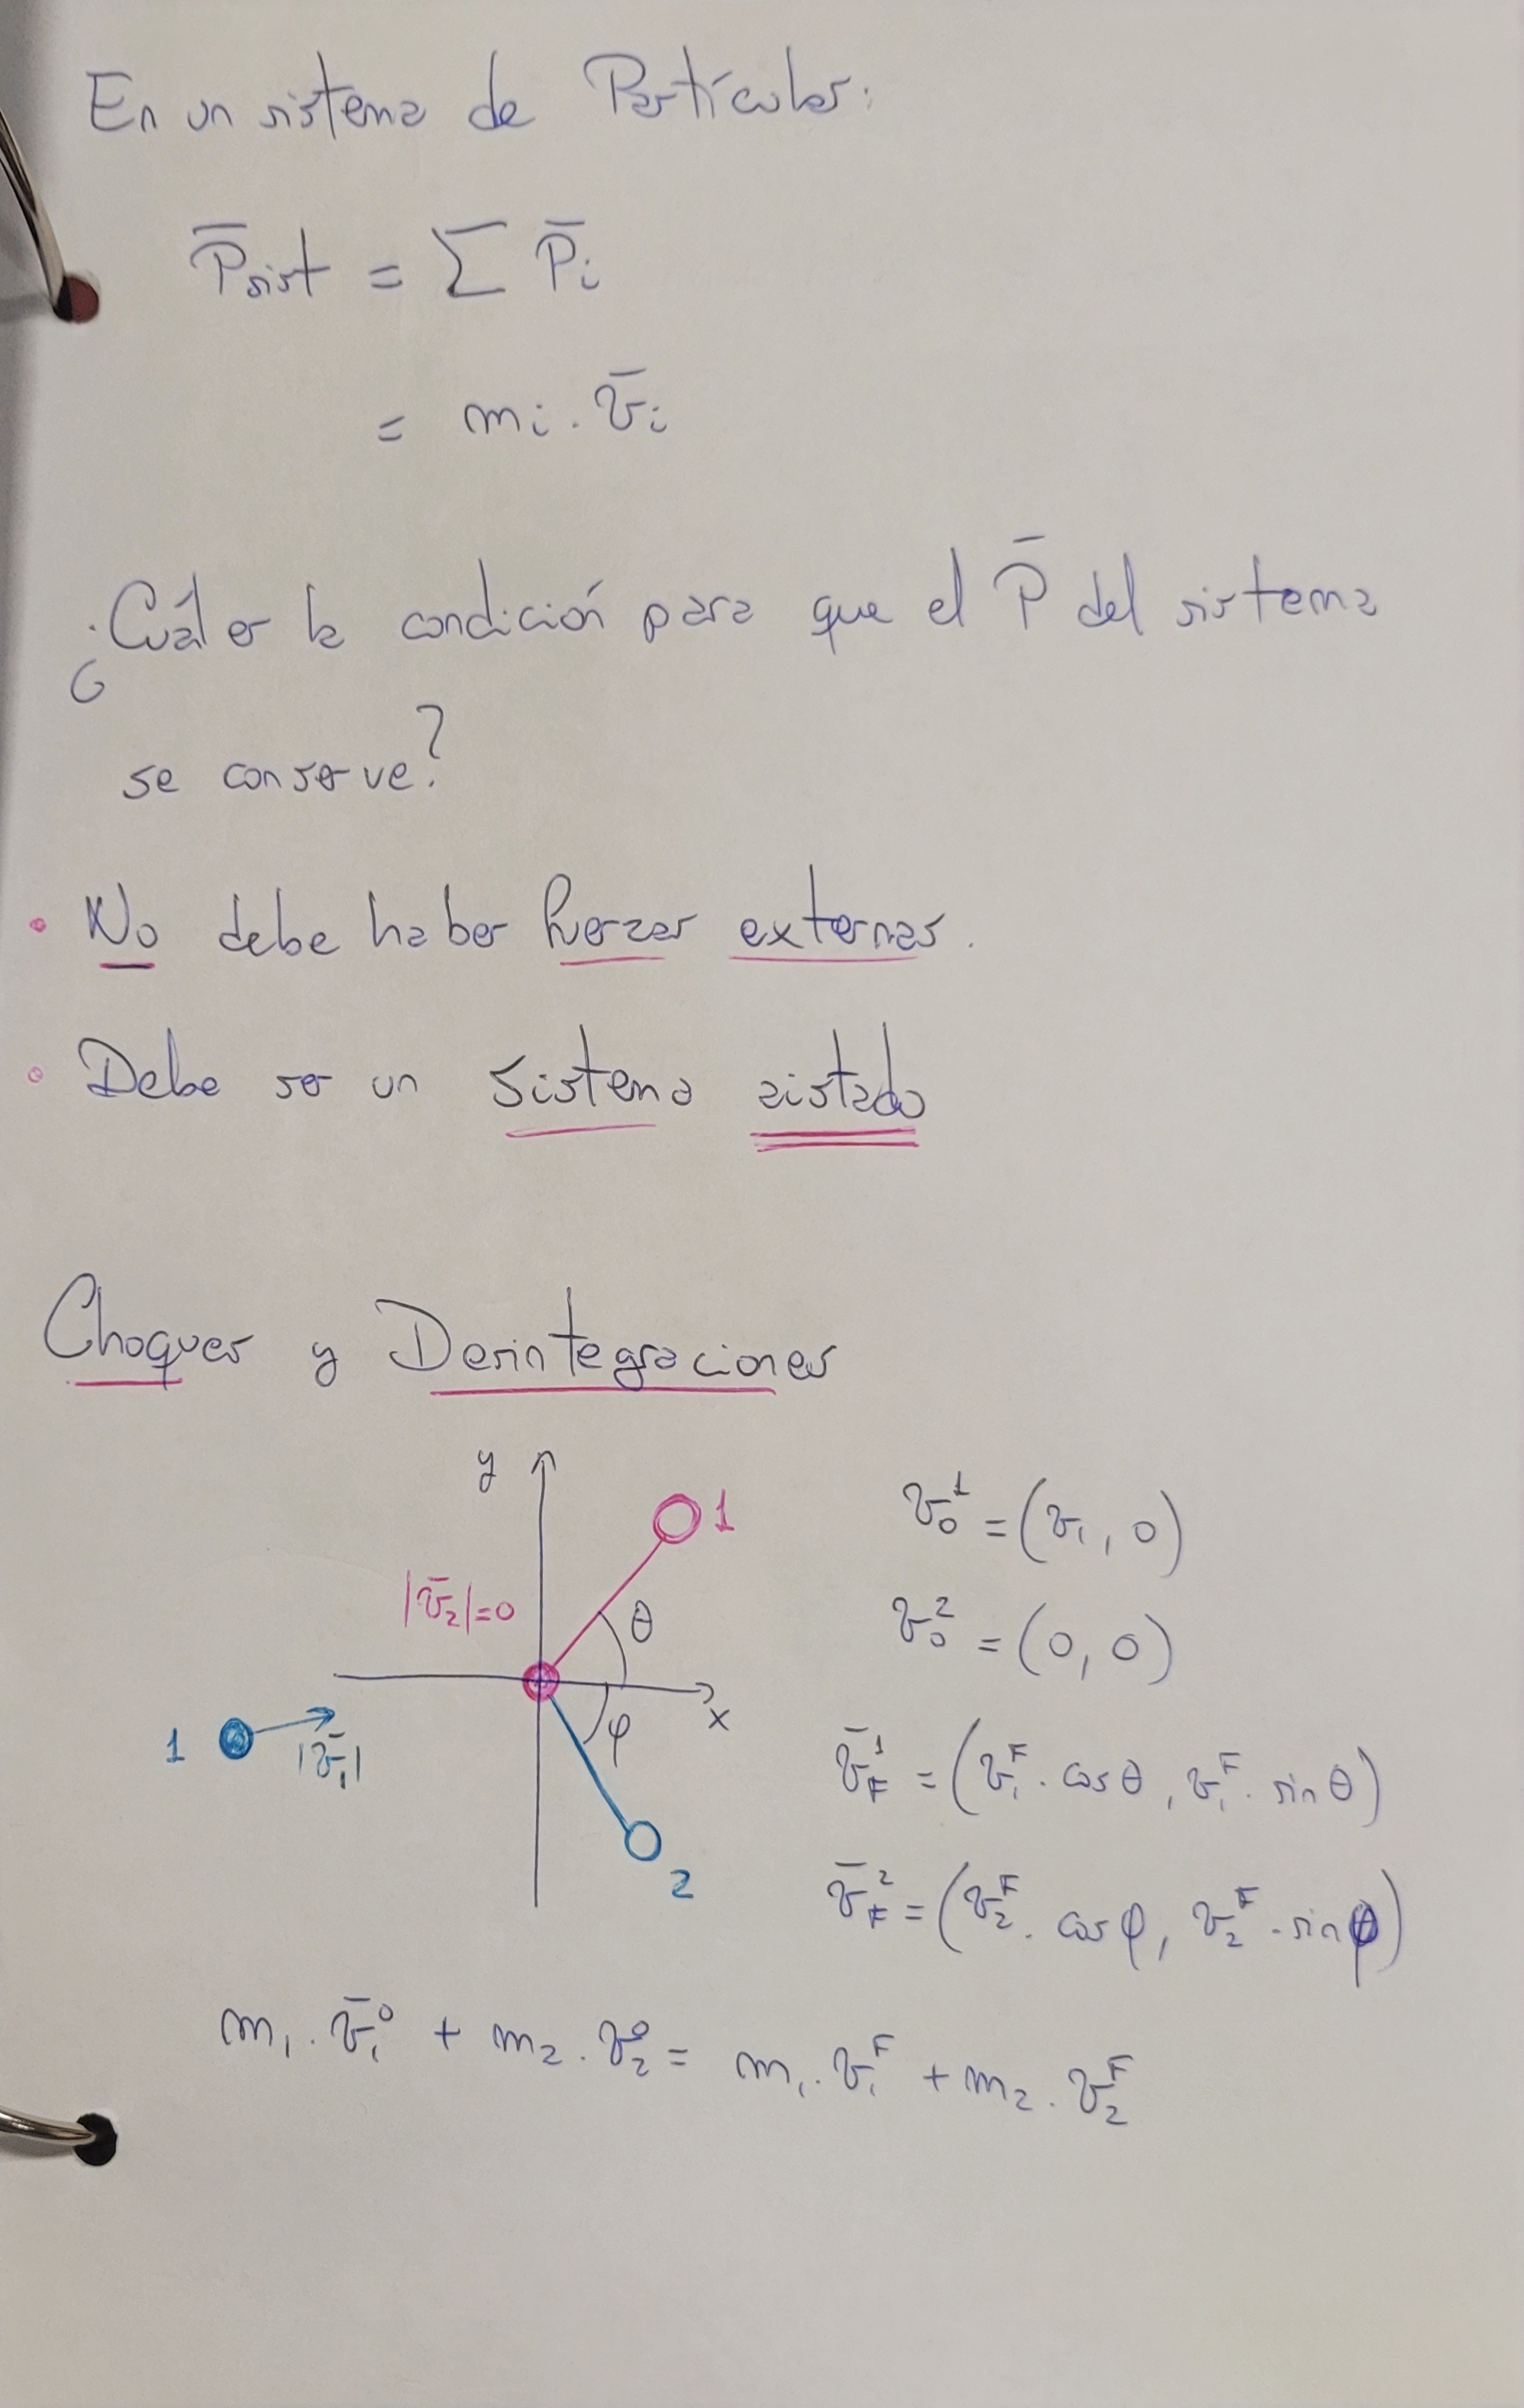 En un sistema de Partículas:
P̄sist = Σ P̄i
= mi . v̄i
¿Cuál es la condición para que el P̄ del sistema
se conserve?
• No debe haber fuerzas externas.
• Debe ser un sistema aislado
Choques y Desintegraciones
y
1
|v̄₂|=0
θ
x
φ
1
|v̄₁|
2
v₀¹ = (v₁, 0)
v₀² = (0, 0)
v̄F¹ = (v₁ᶠ . cosθ, v₁ᶠ . sinθ)
v̄F² = (v₂ᶠ . cosφ, v₂ᶠ . sinφ)
m₁ . v̄₁⁰ + m₂ . v₂⁰ = m₁ . v₁ᶠ + m₂ . v₂ᶠ